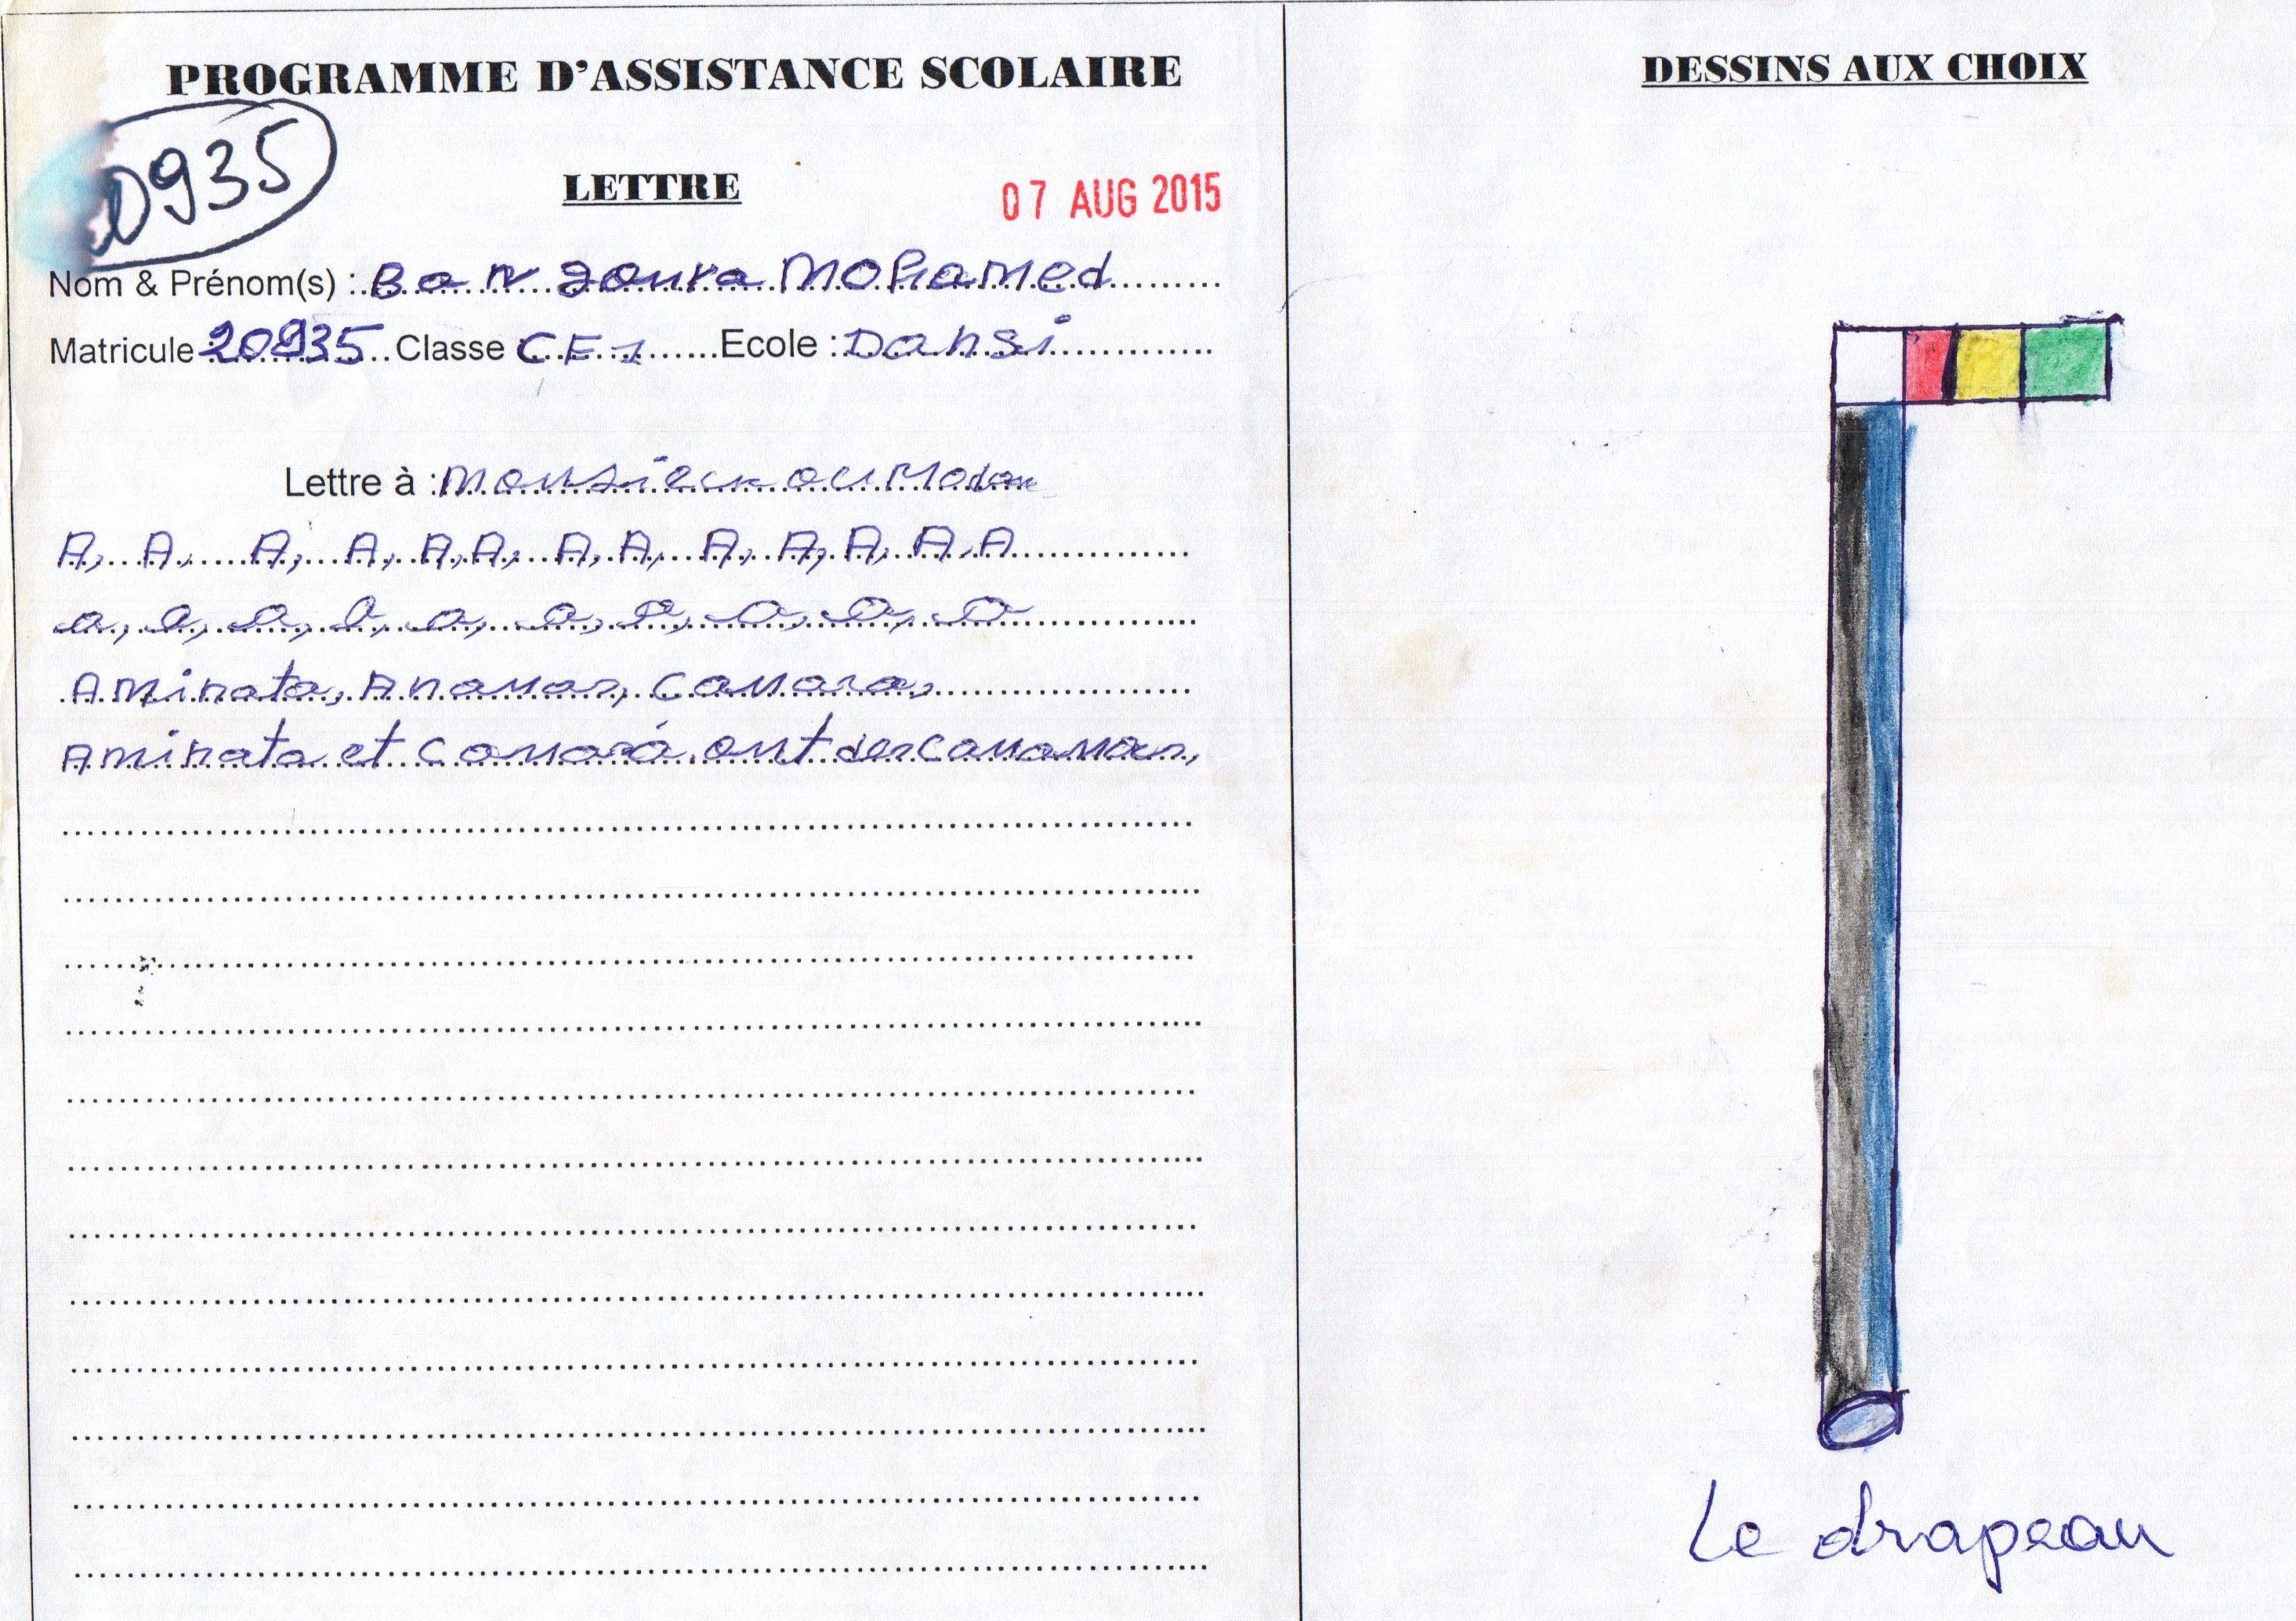 PROGRAMME D'ASSISTANCE SCOLAIRE
20935
LETTRE
07 AUG 2015
Nom & Prénom(s) : Bangoura Mohamed
Matricule 20935 Classe CE1 Ecole : Dansi
Lettre à : Monsieur ou Madame
A, A, A, A, A, A, A, A, A, A, A, A, A
a, a, a, a, a, a, a, a, a, a
Aminata, Ananas, Camara,
Aminata et Camara ont des
DESSINS AUX CHOIX
Le drapeau